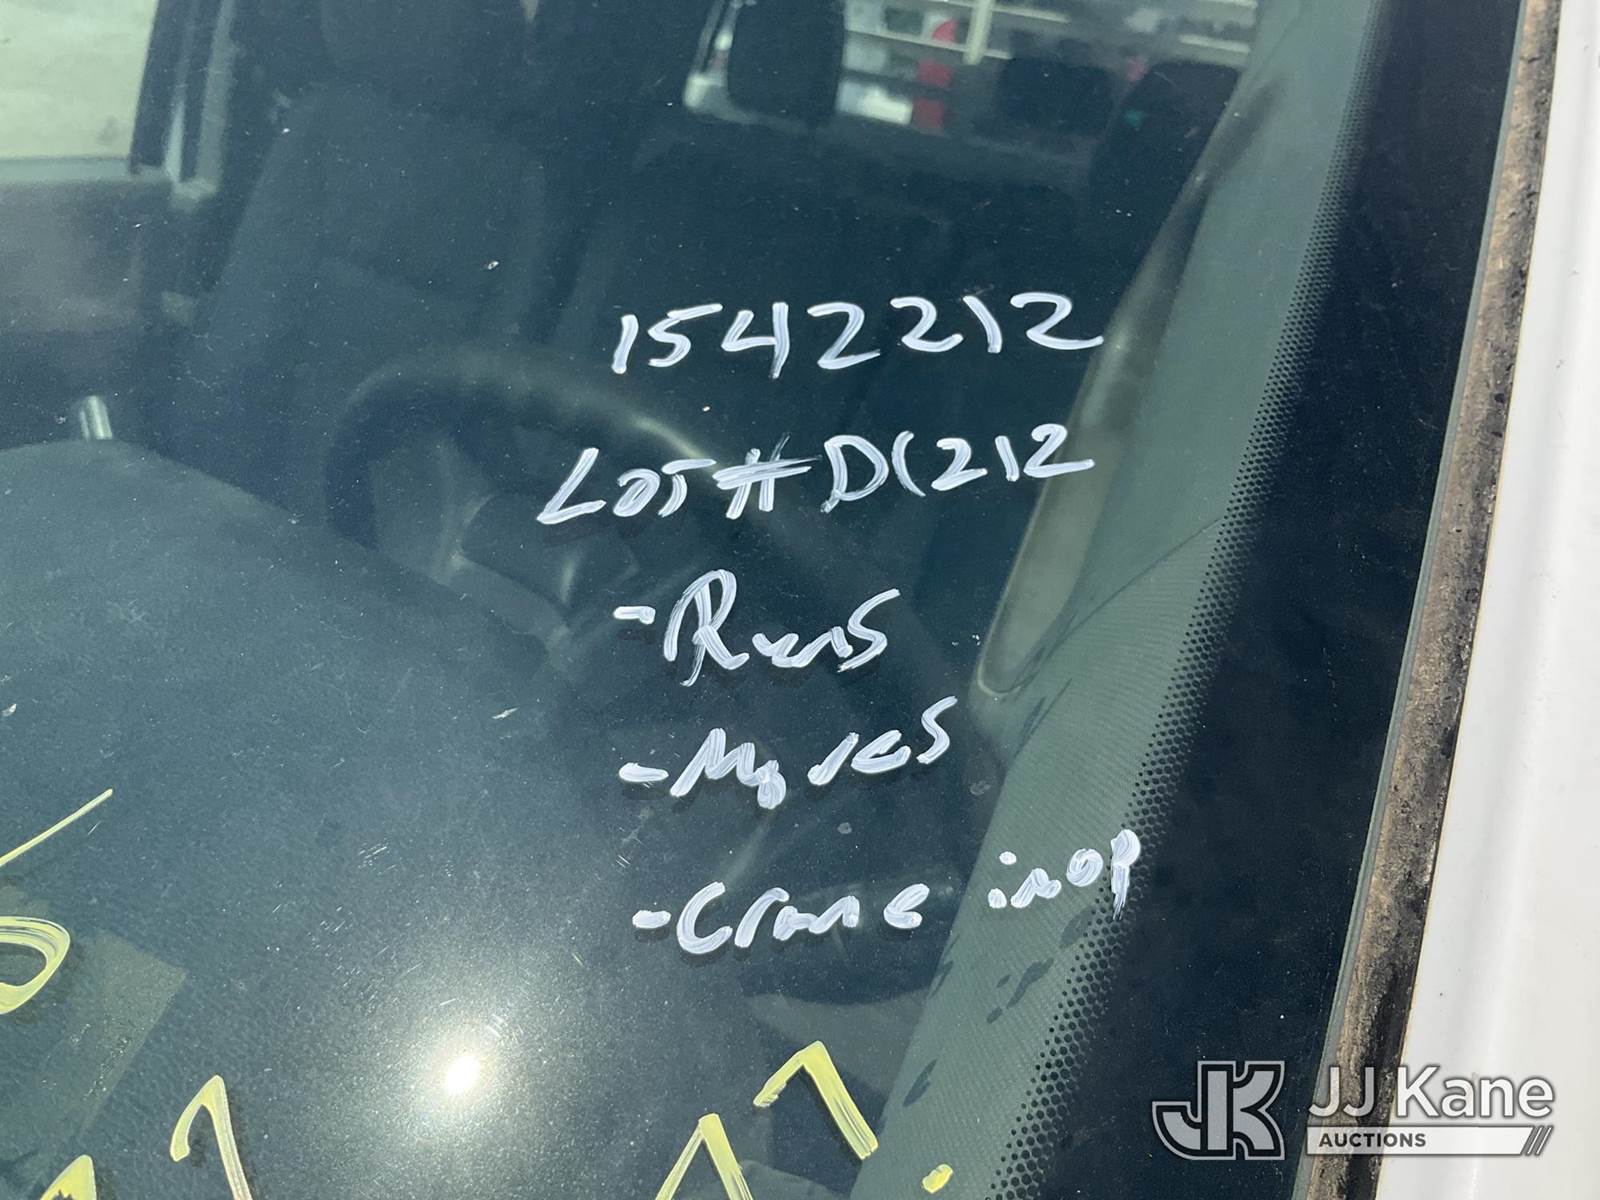 1542212
LOT # D(212
- Runs
- Moves
- Crane inop
JJ Kane
AUCTIONS